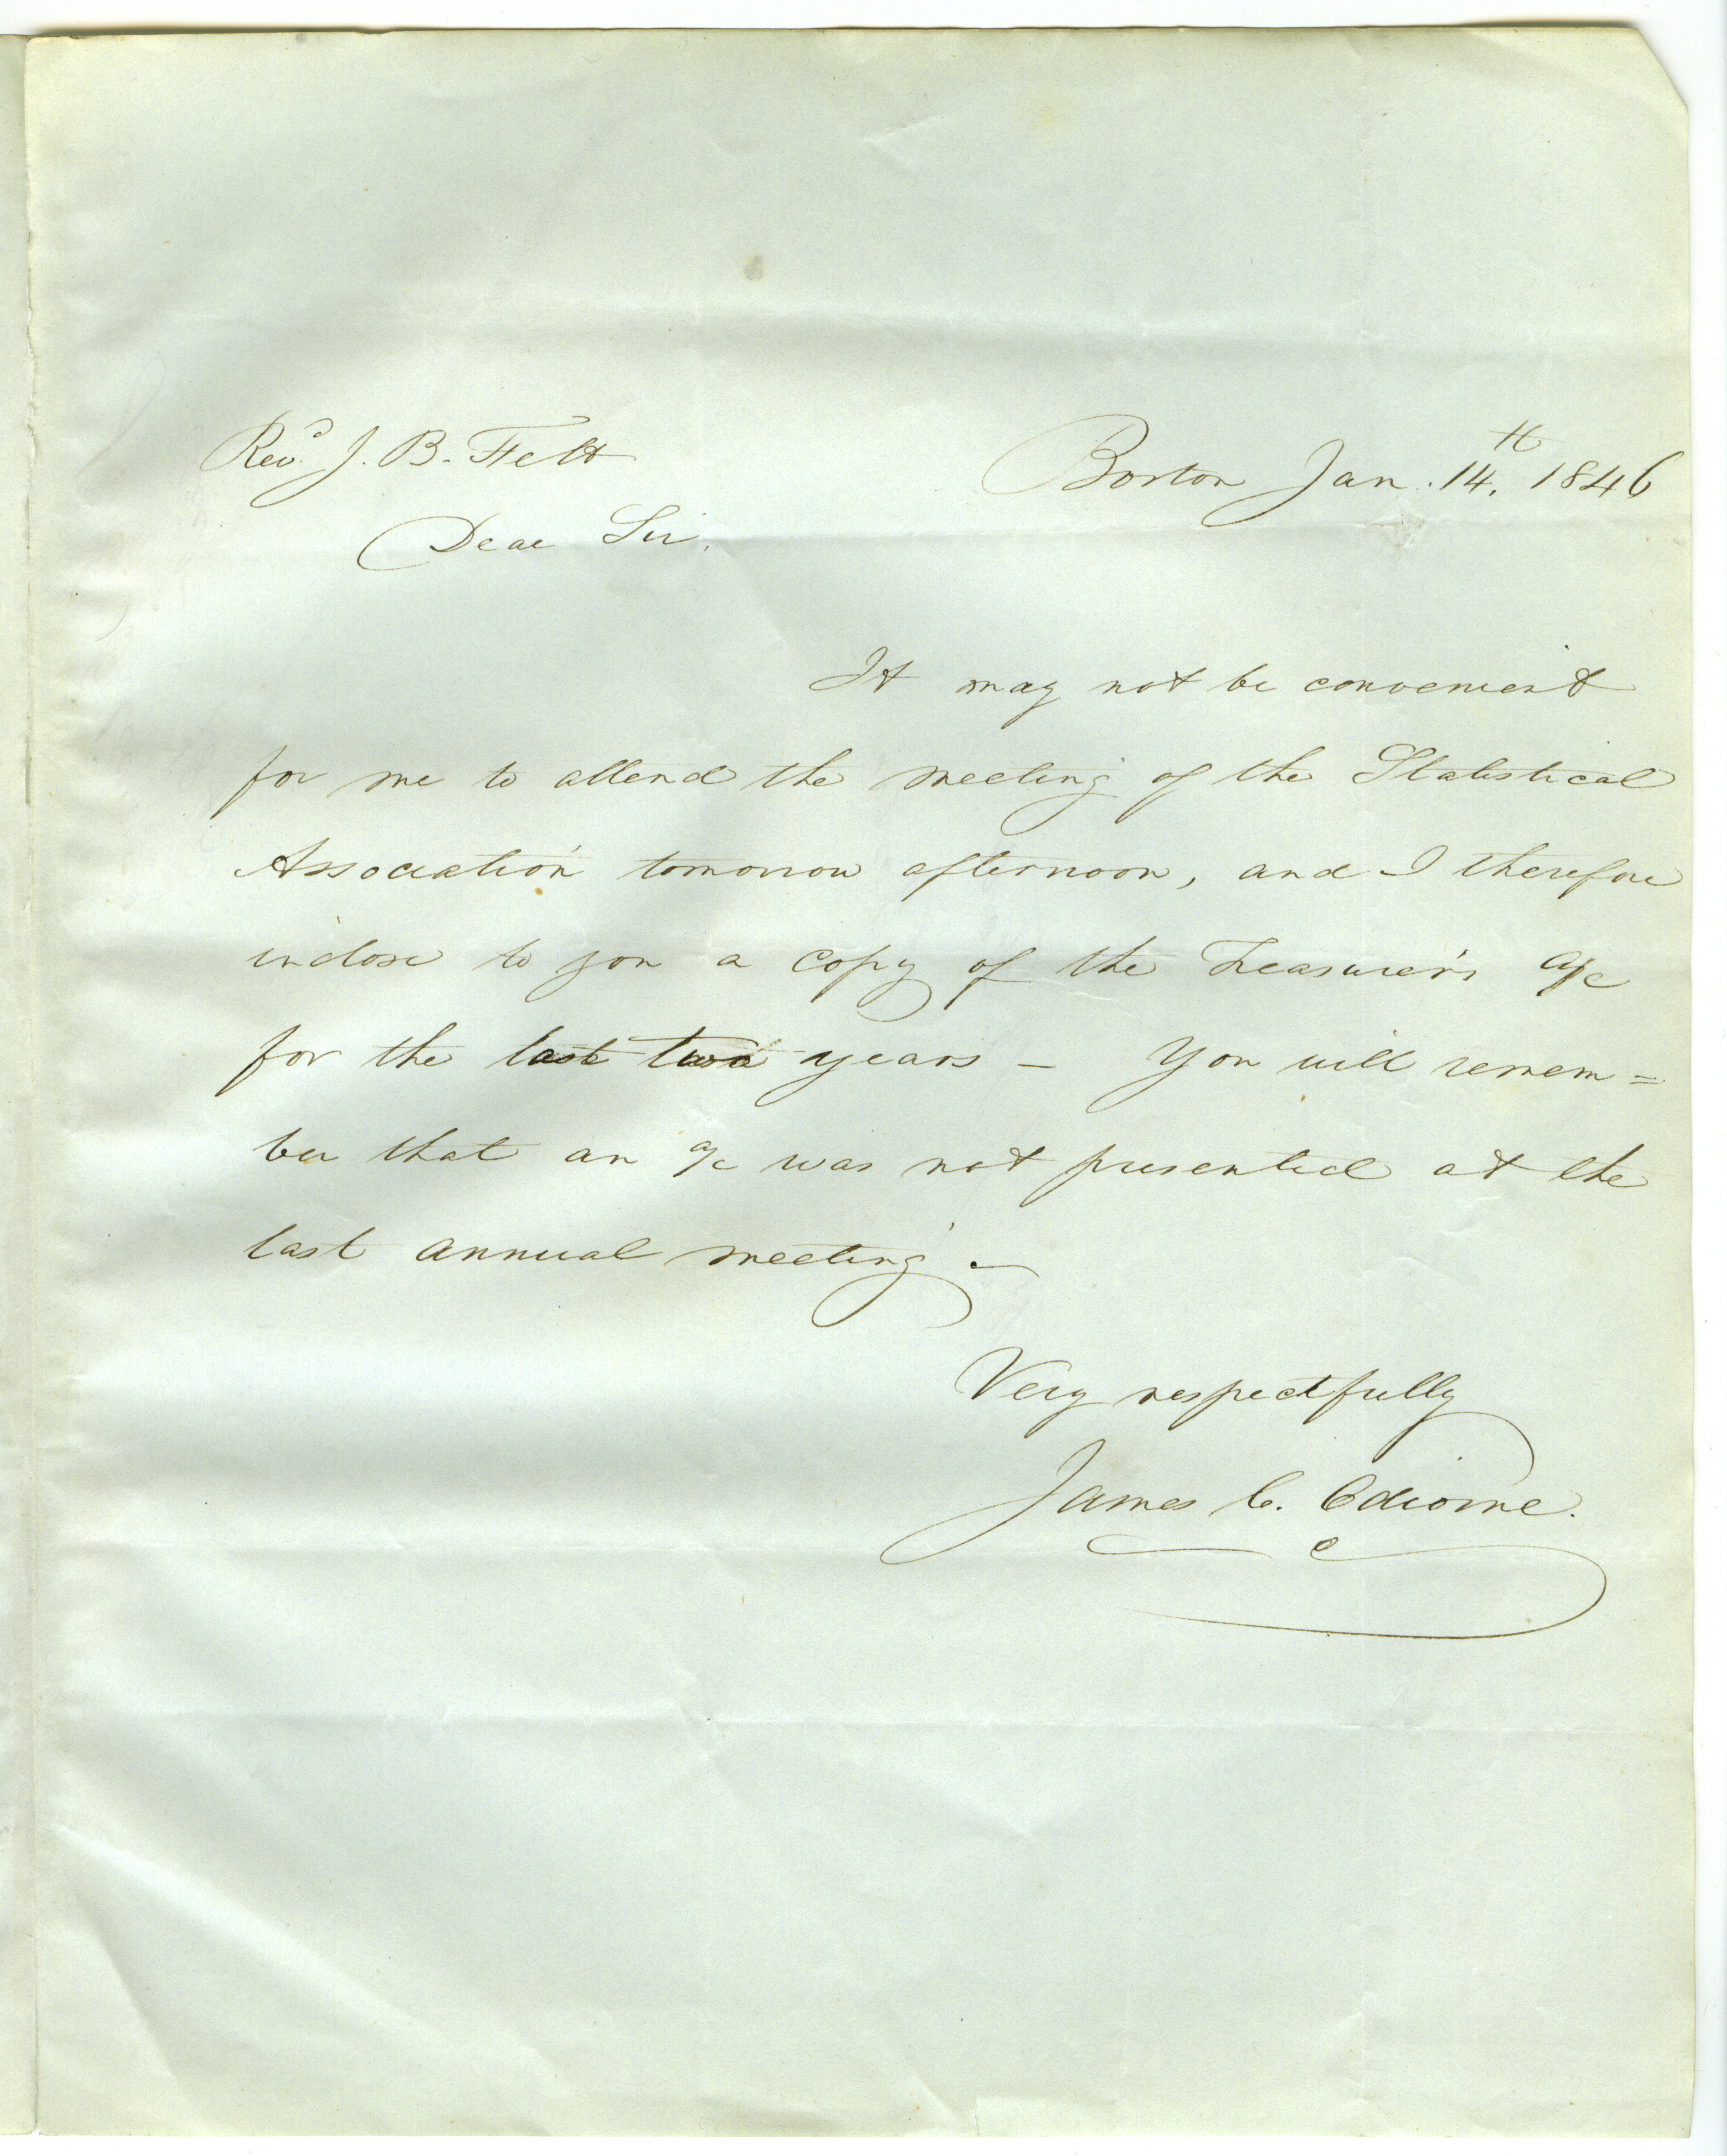 Revd. J. B. Felt
Boston Jan. 14th, 1846
Dear Sir,
It may not be convenient
for me to attend the meeting of the Statistical
Association tomorrow afternoon, and I therefore
inclose to you a copy of the Treasurer's a/c
for the last two years – You will remem=
ber that an a/c was not presented at the
last annual meeting. –
Very respectfully
James C. Odiorne.